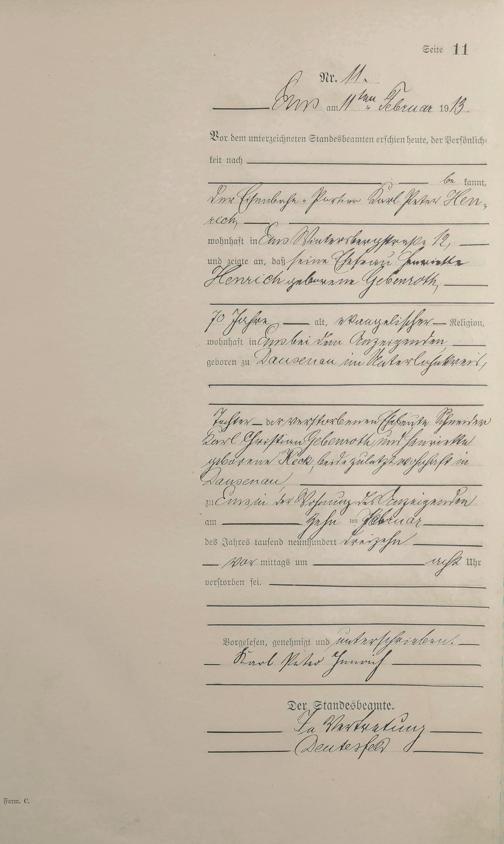 Seite 11
Nr. 11.
Ems am 11ten Februar 1913.
Vor dem unterzeichneten Standesbeamten erschien heute, der Persönlich-
keit nach
be kannt,
der Eisenbahn-Portier Karl Peter Hen-
rich,
wohnhaft in Ems Wintersbergstraße 12,
und zeigte an, daß seine Ehefrau Henriette
Henrich geborene Gebenroth,
70 Jahre alt, evangelischer Religion,
wohnhaft in Ems bei dem Anzeigenden
geboren zu Dausenau im Unterlahnkreis,
Tochter der verstorbenen Eheleute Schneider
Karl Christian Gebenroth und Henriette
geborene Keck, beide zuletzt wohnhaft in
Dausenau,
zu Ems in der Wohnung des Anzeigenden
am zehn ten Februar
des Jahres tausend neunhundert dreizehn
vor mittags um acht Uhr
verstorben sei.
Vorgelesen, genehmigt und unterschrieben.
Karl Peter Henrich
Der Standesbeamte.
In Vertretung
Form. C.